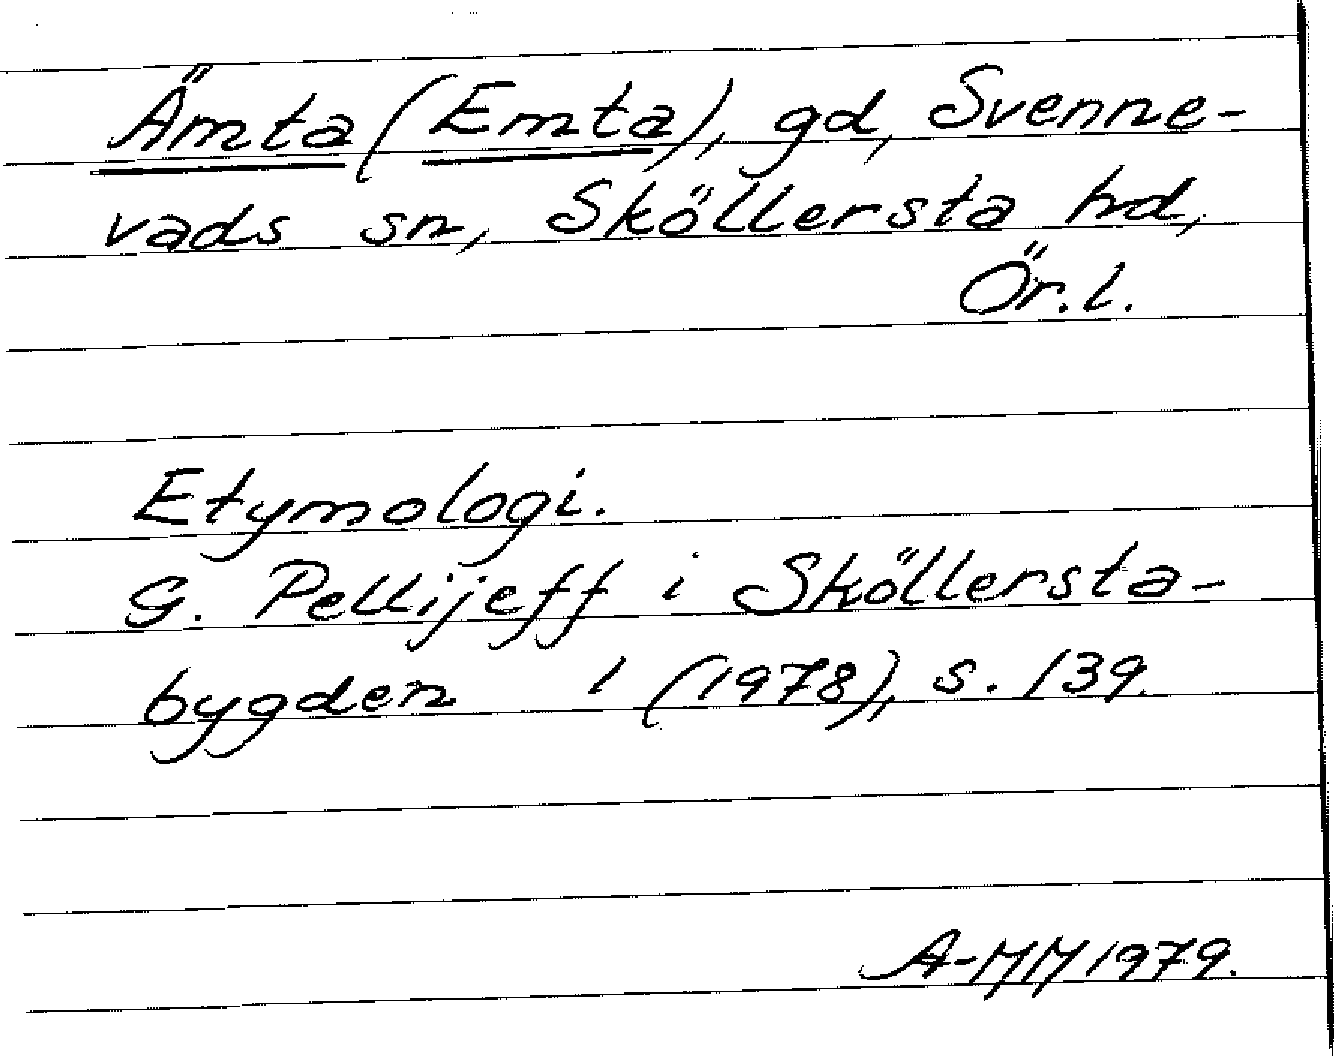 Ämta (Emta), gd, Svenne-
vads sn, Sköllersta hd,
Ör. l.
Etymologi.
G. Pellijeff i Sköllersta-
bygden 1 (1978), s. 139.
A-MM 1979.